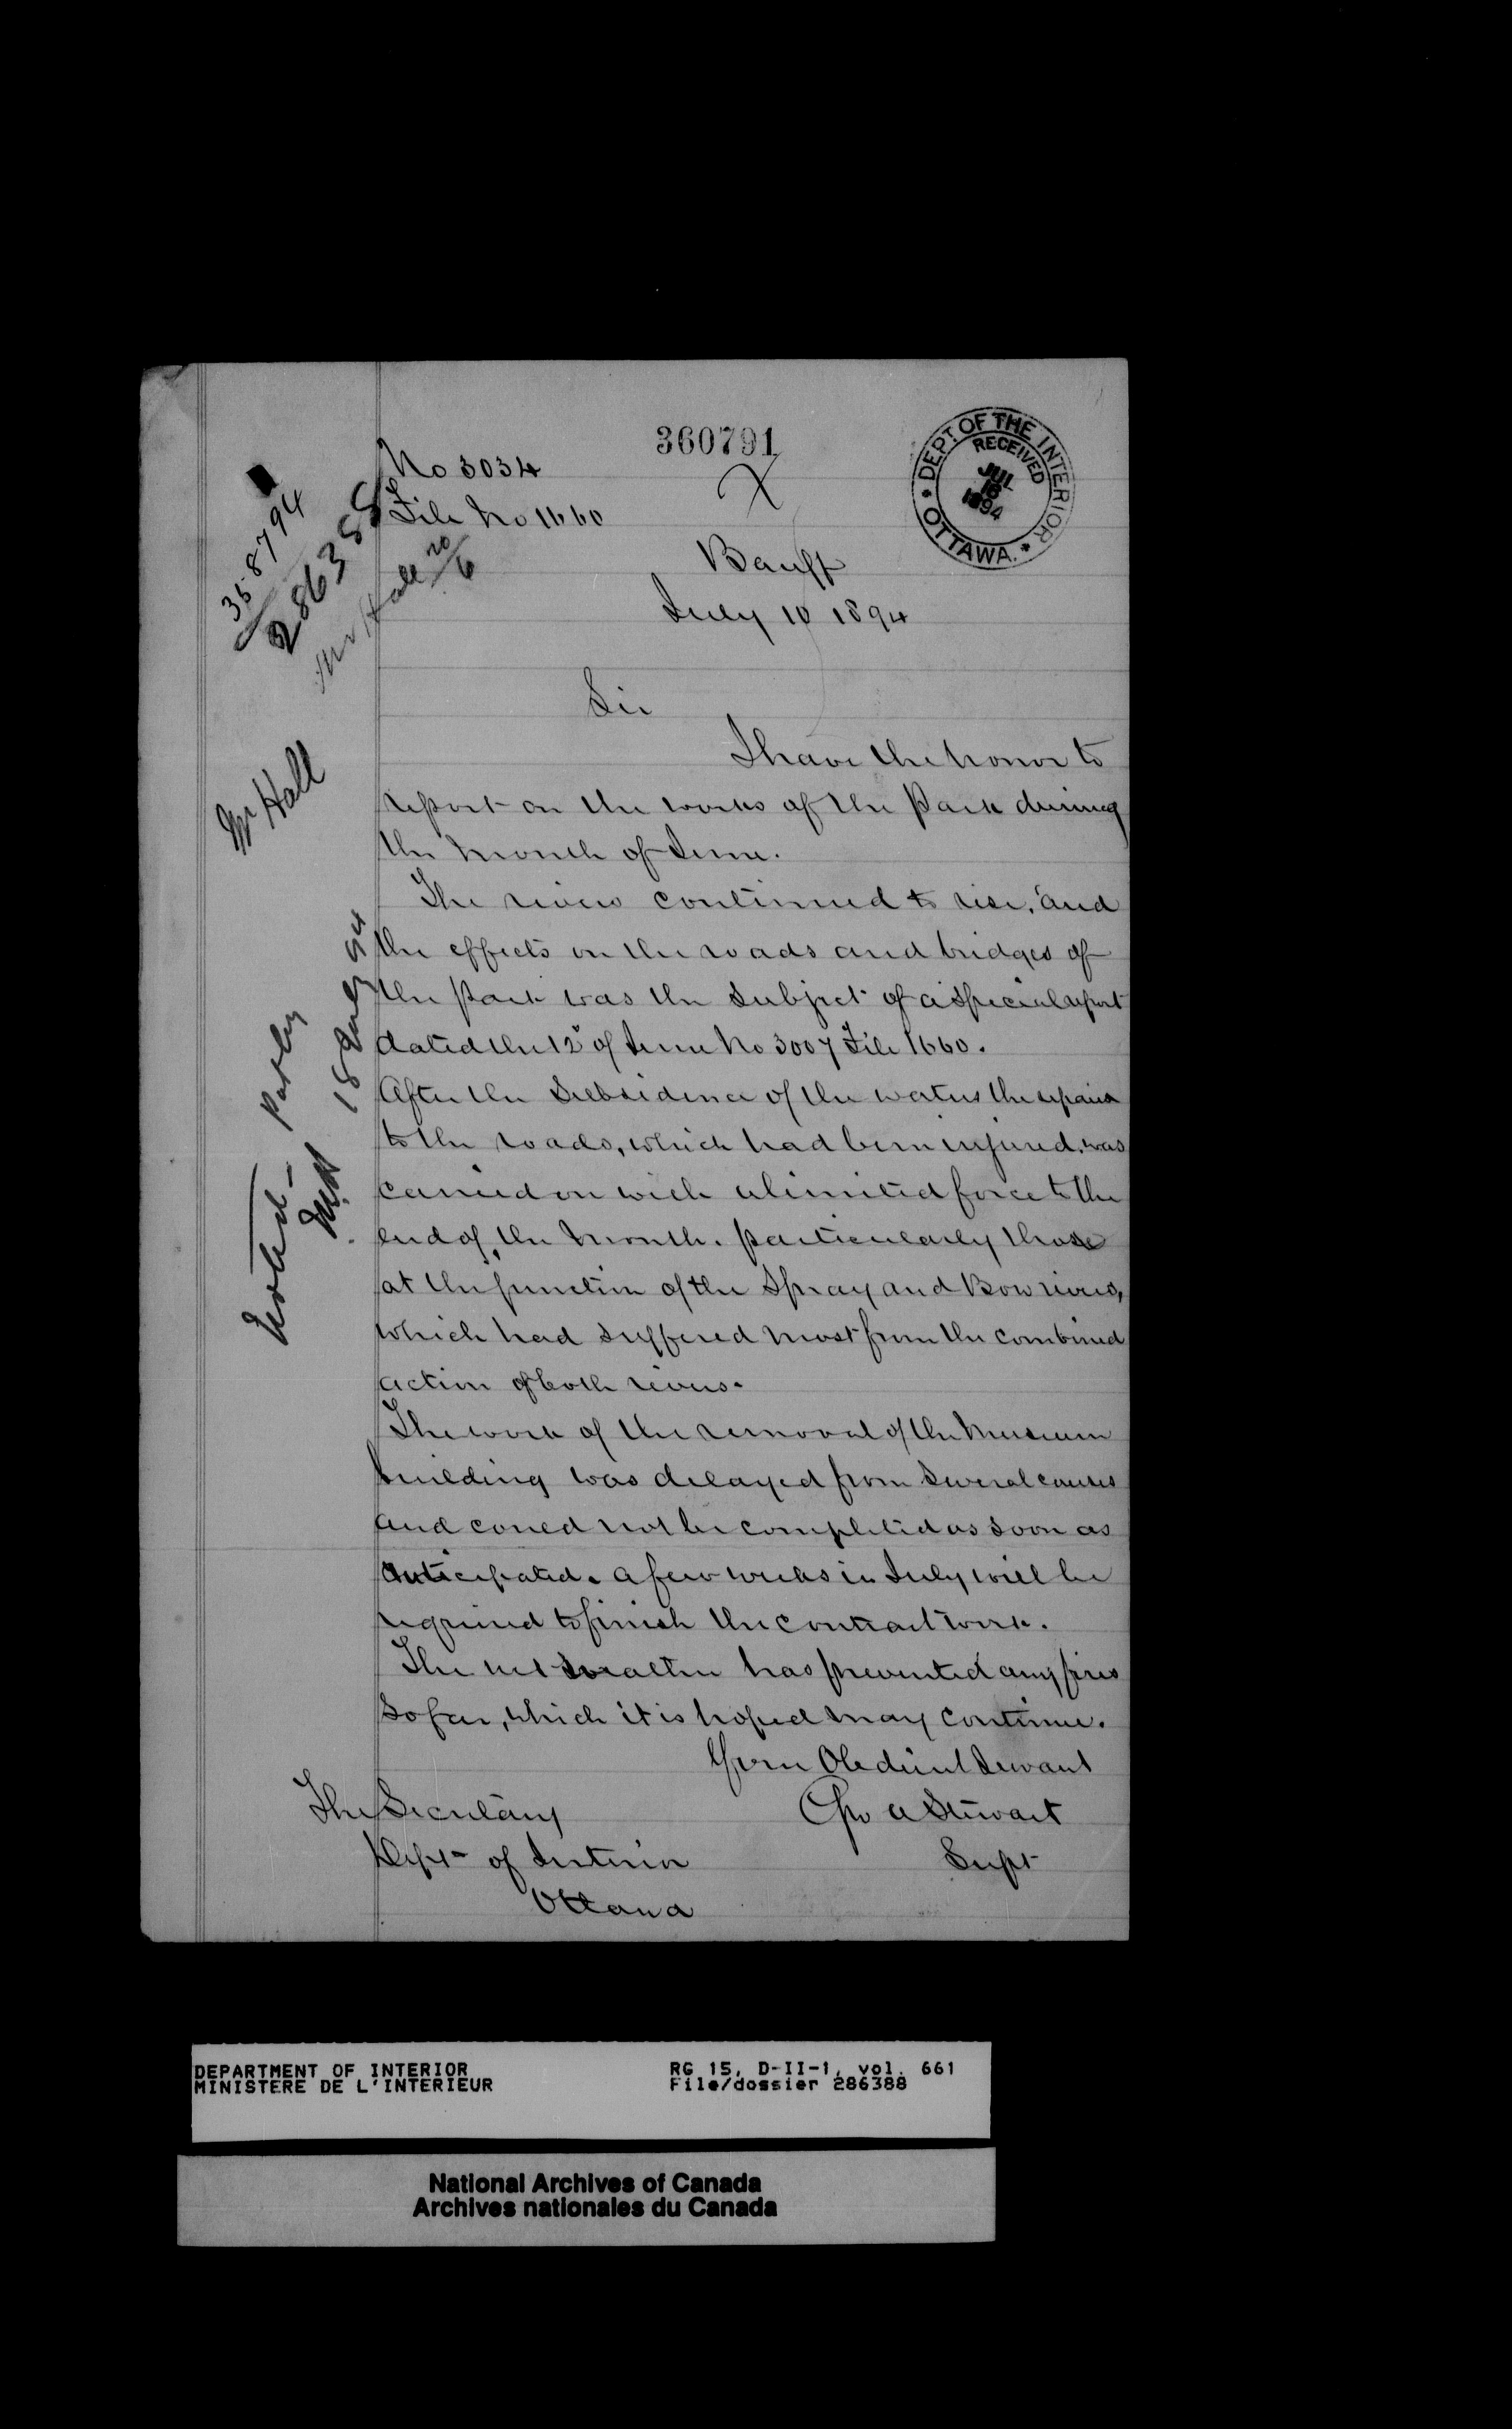 360791
DEPT. OF THE INTERIOR
RECEIVED
JUL
16
1894
OTTAWA.
No 3034
File No 1660
358794
286388
Mr Hall
Mr Hall
Banff
July 10 1894
Sir
I have the honor to
report on the works of the Park during
the month of June.
The rivers continued to rise, and
the effects on the roads and bridges of
the Park was the subject of a special report
dated the 12th of June No 3007 File 1660.
After the subsidence of the waters the repairs
to the roads, which had been injured, was
carried on with a limited force to the
end of the month, particularly those
at the junction of the Spray and Bow rivers,
which had suffered most from the combined
action of both rivers.
The work of the removal of the Museum
building was delayed from several causes
and could not be completed as soon as
anticipated. a few weeks in July will be
required to finish the contract work.
The wet weather has prevented any fires
so far, which it is hoped may continue.
Your Obedient Servant
Geo A Stewart
Supt
The Secretary
Dept of Interior
Ottawa
Noted
18 July 94
DEPARTMENT OF INTERIOR
MINISTERE DE L'INTERIEUR
RG 15, D-II-1, vol. 661
File/dossier 286388
National Archives of Canada
Archives nationales du Canada